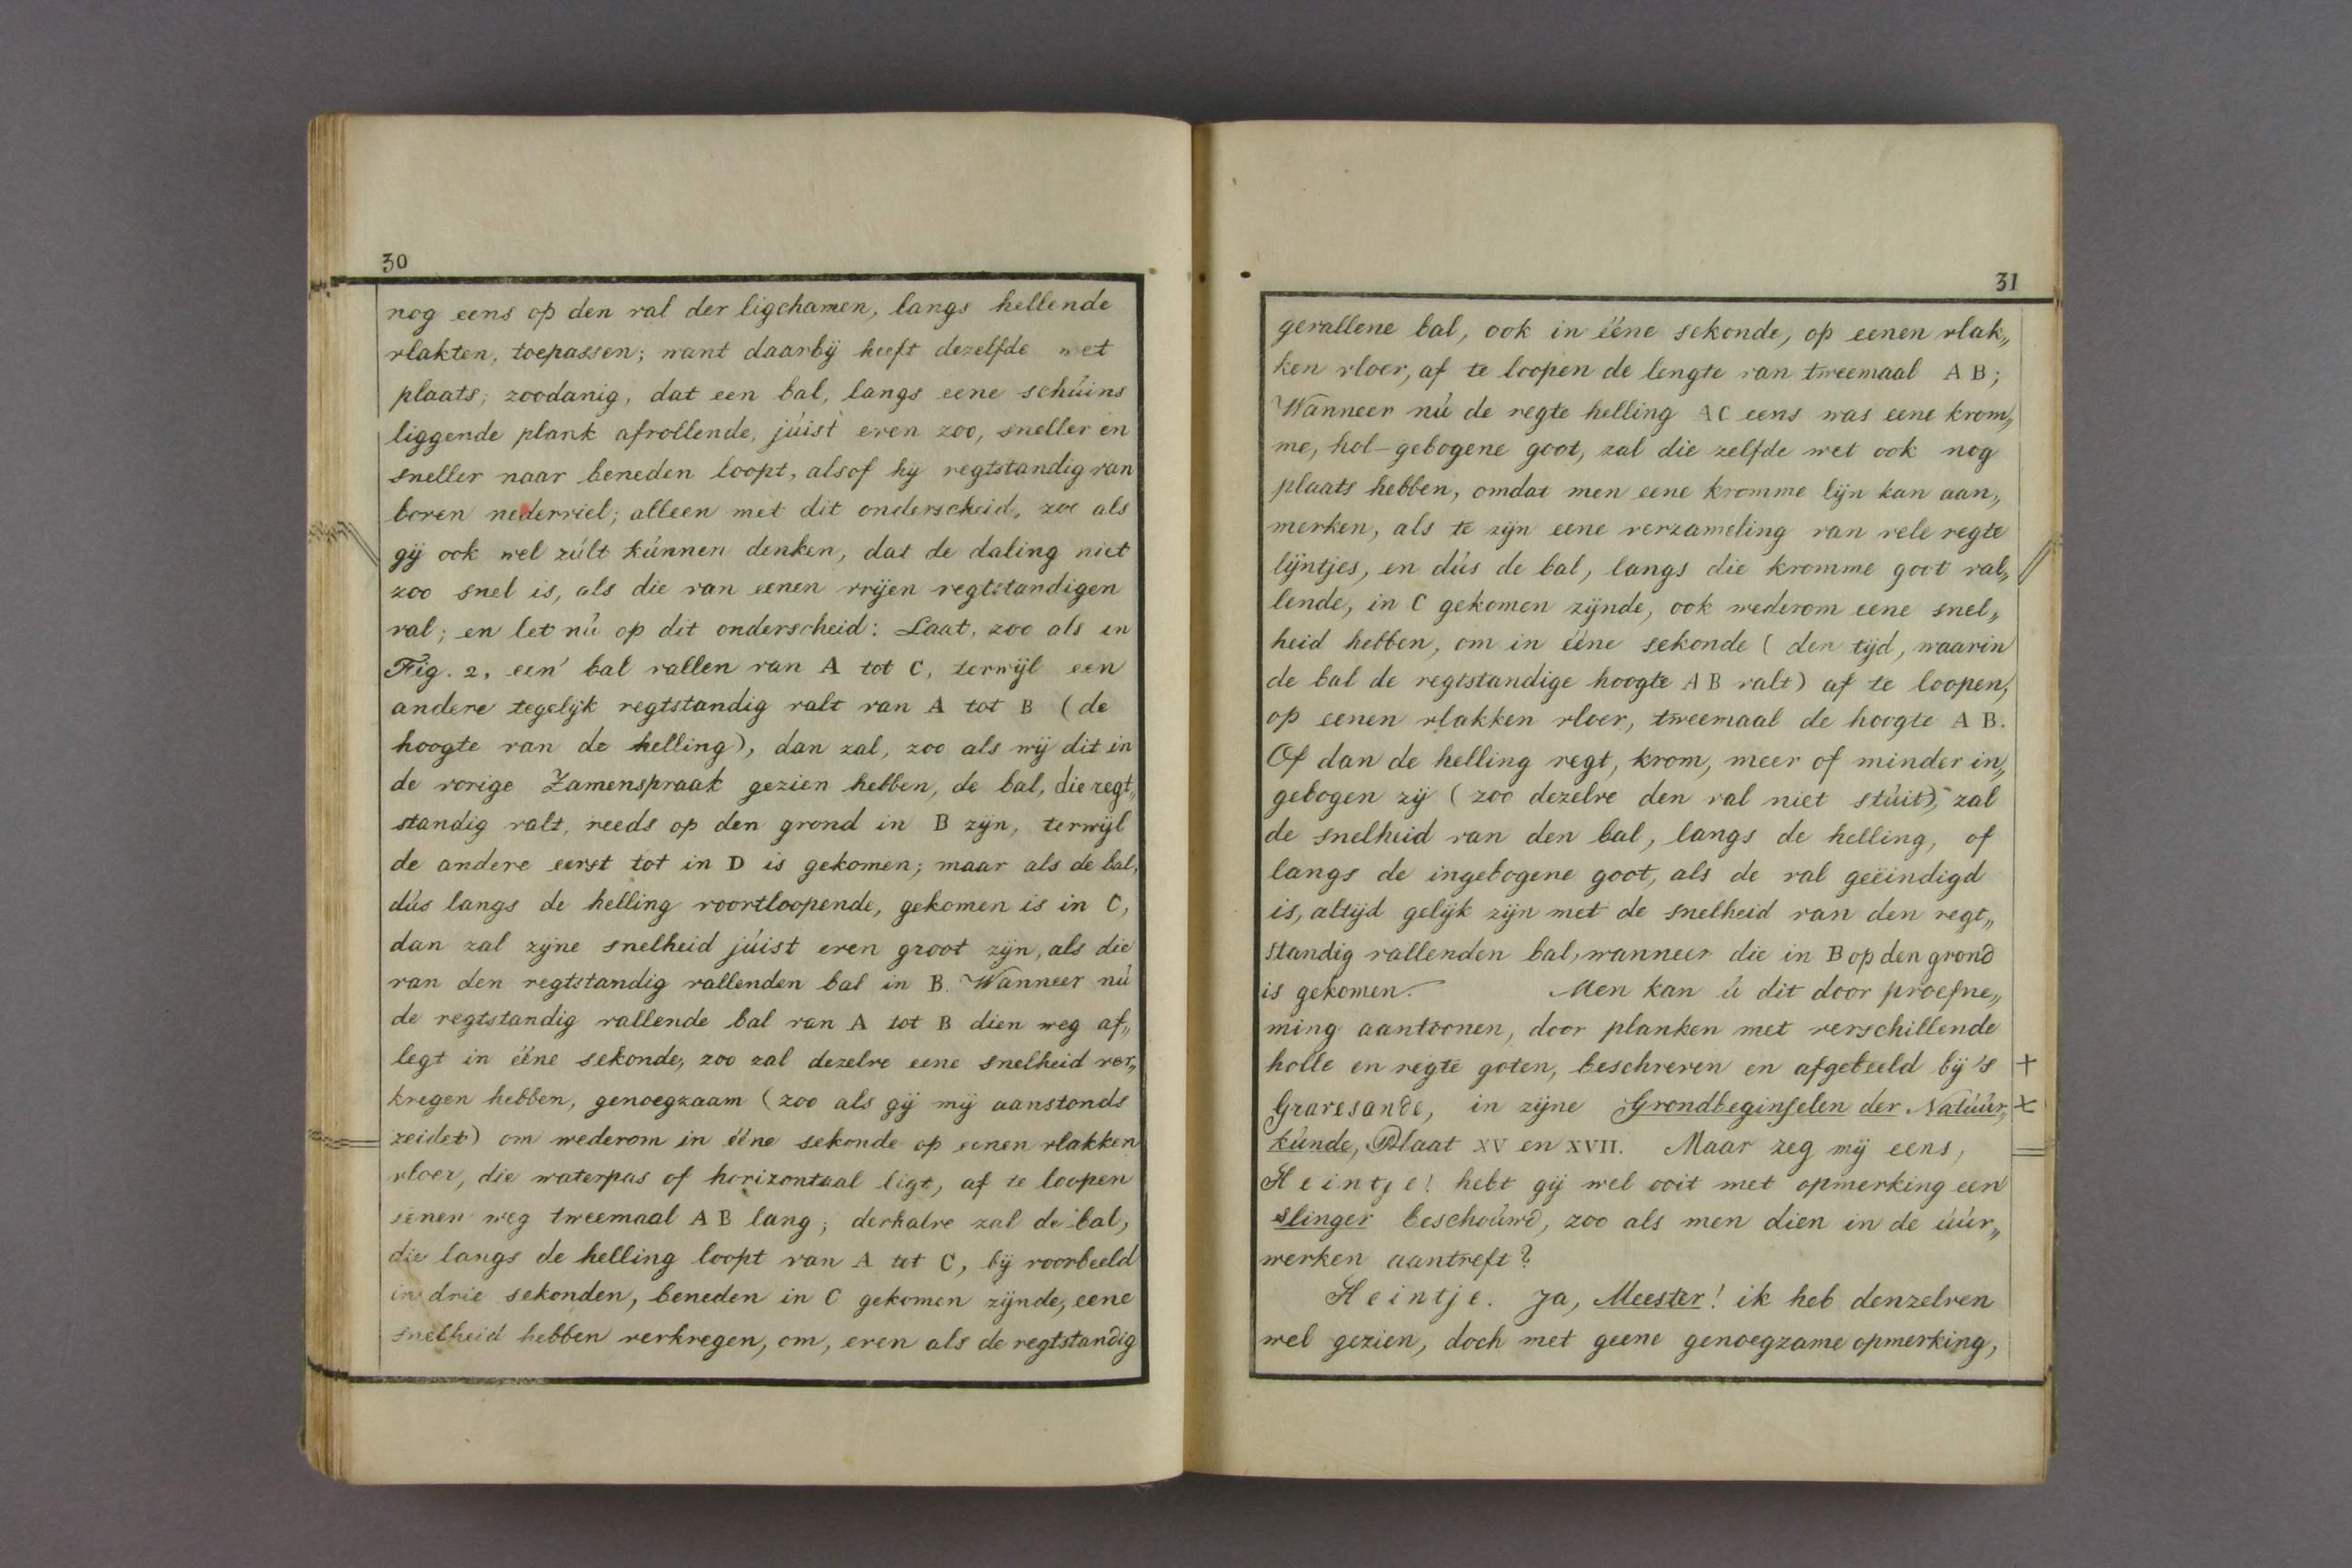 30
nog eens op den val der ligchamen, langs hellende
vlakten, toepassen; want daarbij heeft dezelfde wet
plaats; zoodanig, dat een bal, langs eene schúins
liggende plank afrollende, júist even zoo, sneller en
sneller naar beneden loopt, alsof hij regtstandig van
boven nederviel; alleen met dit onderscheid, zoo als
gij ook wel zúlt kúnnen denken, dat de daling niet
zoo snel is, als die van eenen vrijen regtstandigen
val; en let nú op dit onderscheid: Laat, zoo als in
Fig. 2, een' bal vallen van A tot C, terwijl een
andere tegelijk regtstandig valt van A tot B (de
hoogte van de helling), dan zal, zoo als wij dit in
de vorige Zamenspraak gezien hebben, de bal, die regt„
standig valt, reeds op den grond in B zijn, terwijl
de andere eerst tot in D is gekomen; maar als de bal,
dús langs de helling voortloopende, gekomen is in C,
dan zal zijne snelheid júist even groot zijn, als die
van den regtstandig vallenden bal in B. Wanneer nú
de regtstandig vallende bal van A tot B dien weg af„
legt in ééne sekonde, zoo zal dezelve eene snelheid ver„
kregen hebben, genoegzaam (zoo als gij mij aanstonds
zeidet) om wederom in ééne sekonde op eenen vlakken
vloer, die waterpas of horizontaal ligt, af te loopen
eenen weg tweemaal AB lang; derhalve zal de bal,
die langs de helling loopt van A tot C, bij voorbeeld
in drie sekonden, beneden in C gekomen zijnde, eene
snelheid hebben verkregen, om, even als de regtstandig
31
gevallene bal, ook in ééne sekonde, op eenen vlak„
ken vloer, af te loopen de lengte van tweemaal AB;
Wanneer nú de regte helling AC eens was eene krom„
me, hol-gebogene goot, zal die zelfde wet ook nog
plaats hebben, omdat men eene kromme lijn kan aan„
merken, als te zijn eene verzameling van vele regte
lijntjes, en dús de bal, langs die kromme goot val„
lende, in C gekomen zijnde, ook wederom eene snel„
heid hebben, om in ééne sekonde (den tijd, waarin
de bal de regtstandige hoogte AB valt) af te loopen,
op eenen vlakken vloer, tweemaal de hoogte AB.
Of dan de helling regt, krom, meer of minder in„
gebogen zij (zoo dezelve den val niet stúit), zal
de snelheid van den bal, langs de helling, of
langs de ingebogene goot, als de val geëindigd
is, altijd gelijk zijn met de snelheid van den regt„
standig vallenden bal, wanneer die in B op den grond
is gekomen. Men kan ú dit door proefne„
ming aantoonen, door planken met verschillende
holle en regte goten, beschreven en afgebeeld bij 's +
Gravesande, in zijne Grondbeginselen der Natúúr„ +
kúnde, Plaat XV en XVII. Maar zeg mij eens,
Heintje! hebt gij wel ooit met opmerking een
slinger beschoúwd, zoo als men dien in de úúr„
werken aantreft?
Heintje. Ja, Meester! ik heb denzelven
wel gezien, doch met geene genoegzame opmerking,